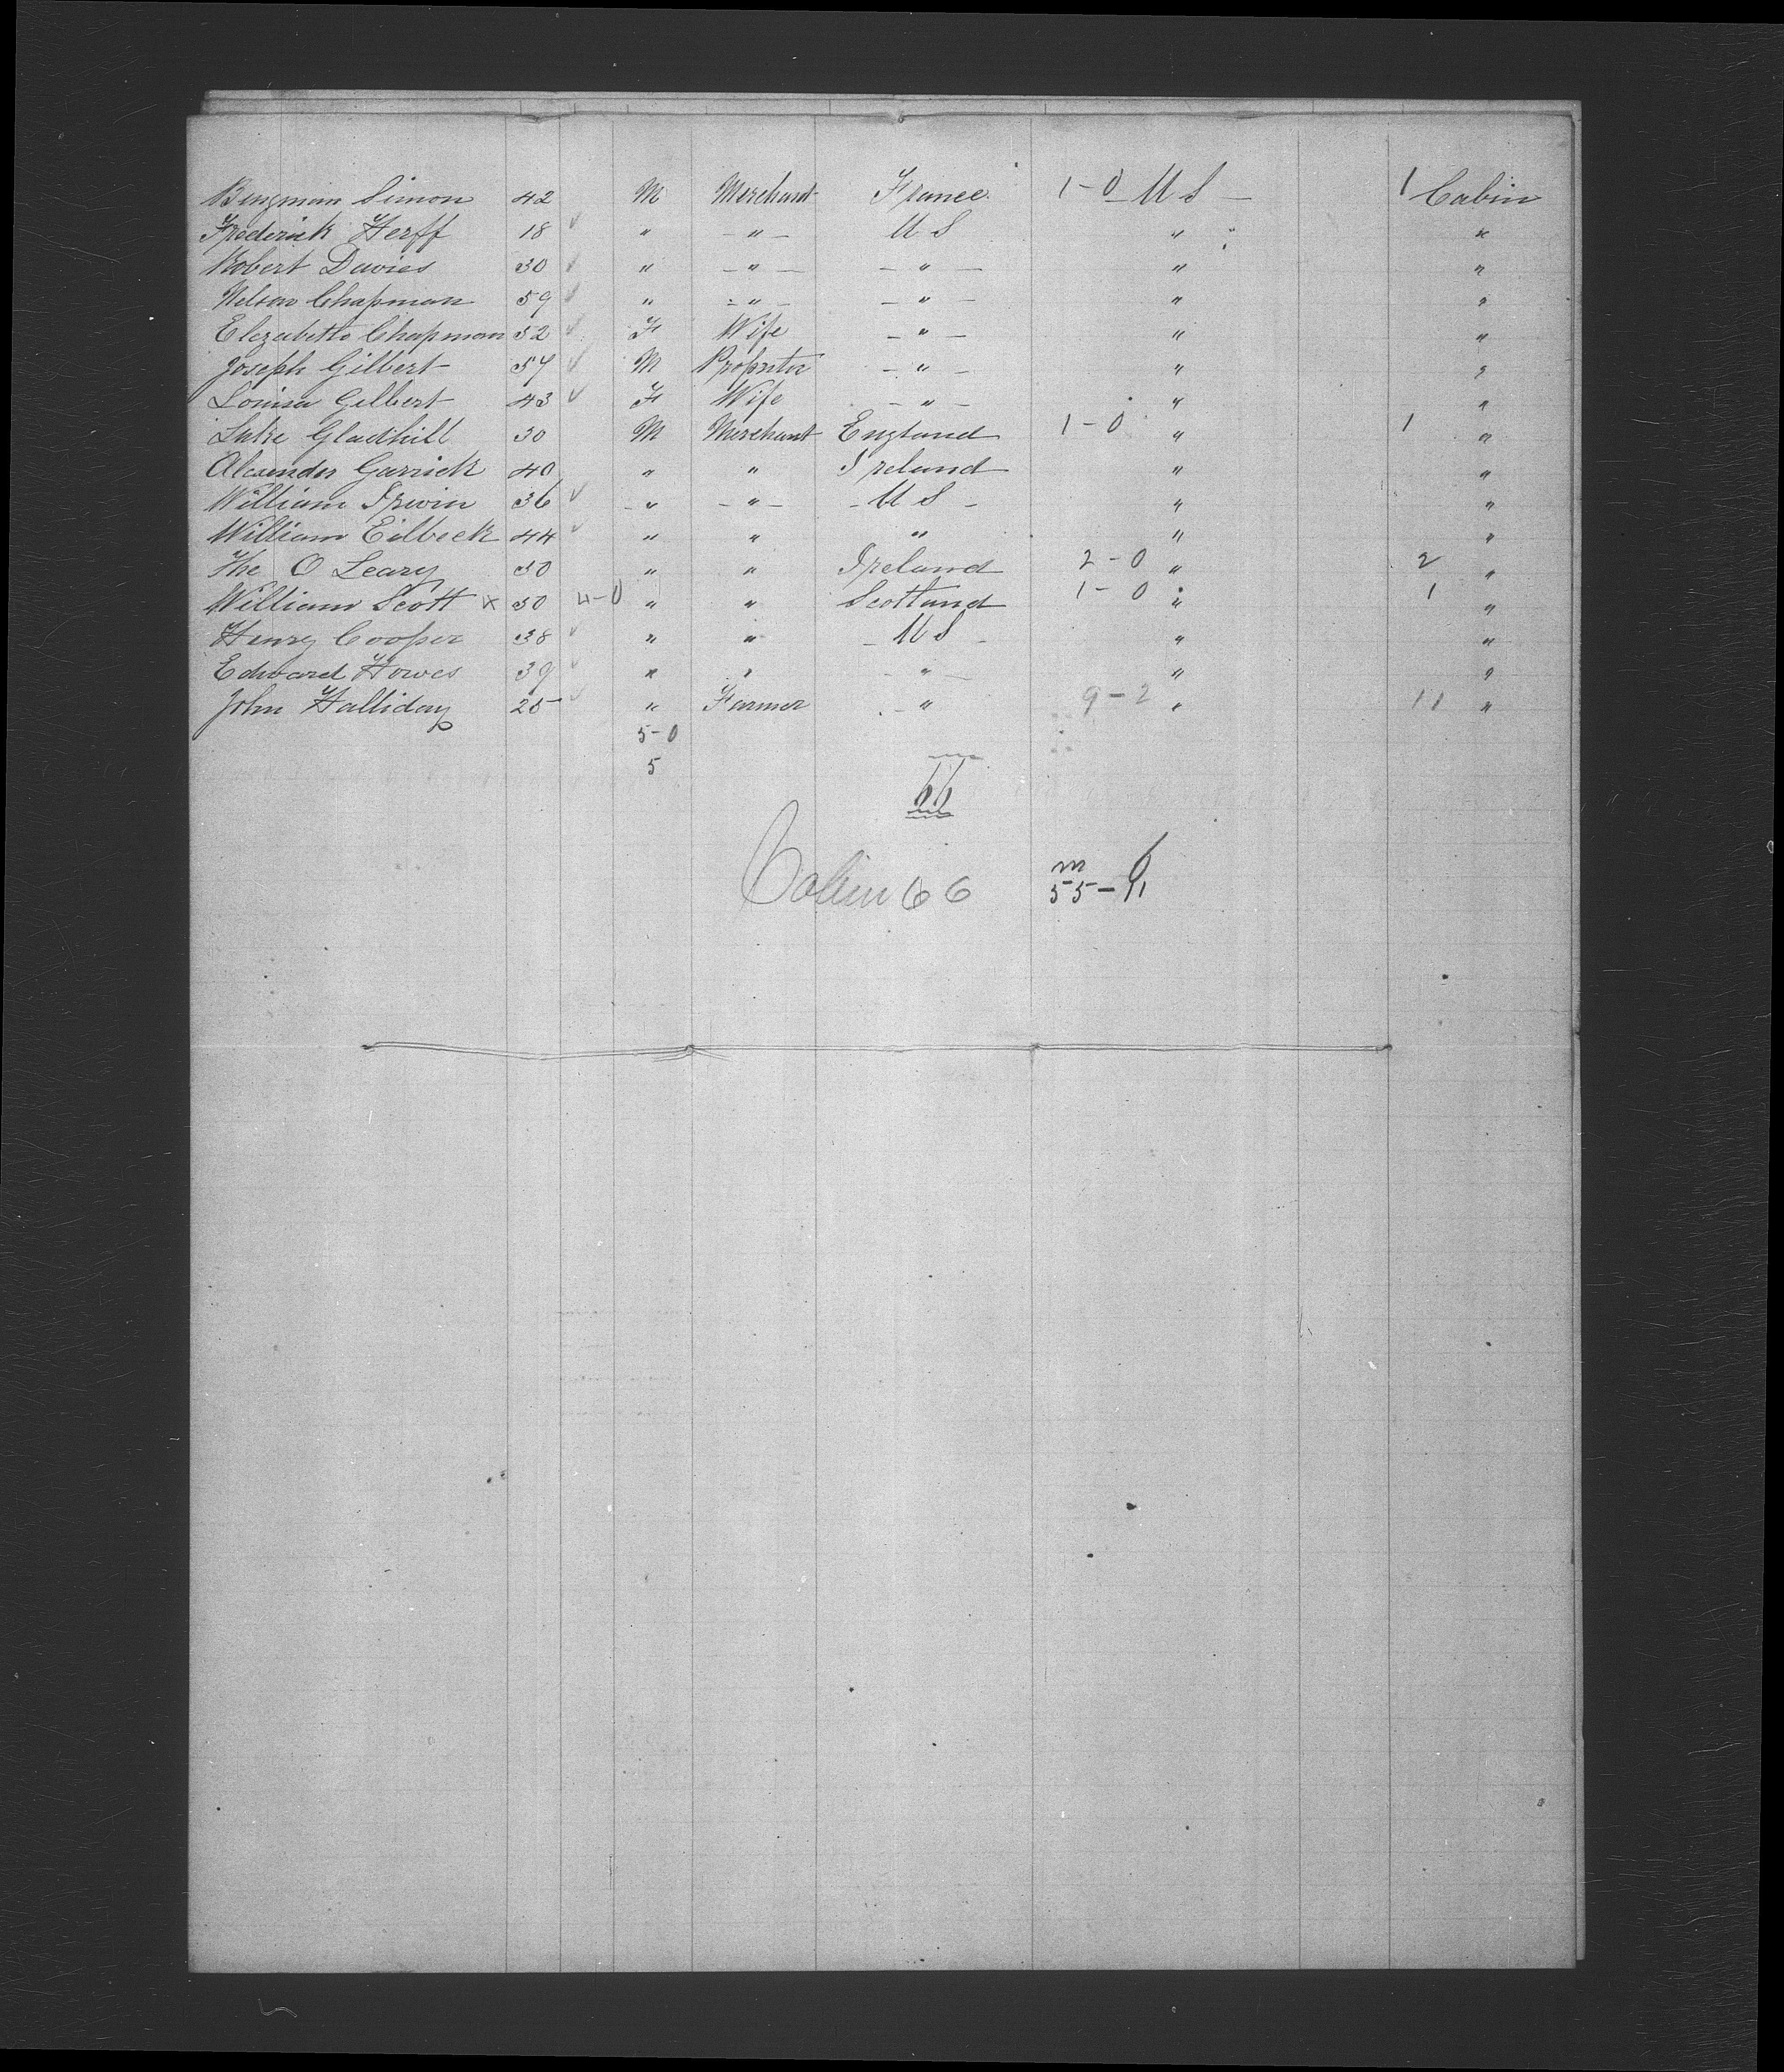 Benjman Simon 42 M Merchant France 1-0 U S 1 Cabin
Frederick Herff 18 ✓ " — " — U S " "
Robert Davies 30 ✓ " — " — — " — " "
Nelson Chapman 59 ✓ " — " — — " — " "
Elizabeth Chapman 52 ✓ F Wife — " — " "
Joseph Gilbert 57 ✓ M Propritor — " — " "
Louisa Gilbert 43 ✓ F Wife — " — " "
Luke Gladhill 30 M Merchant England 1-0 " 1 "
Alexander Garrick 40 " " Ireland " "
William Irwin 36 ✓ " — " — U S " "
William Eilbeck 44 ✓ " " " " "
The O Leary 50 " " Ireland 2-0 " 2 "
William Scott x 30 4-0 " " Scotland 1-0 " 1 "
Henry Cooper 38 ✓ " " U S " "
Edward Howes 39 ✓ " " — " — " "
John Halliday 25 ✓ " Farmer — " 9-2 " 11 "
5-0
5
66
Cabin 66
m f
55-11